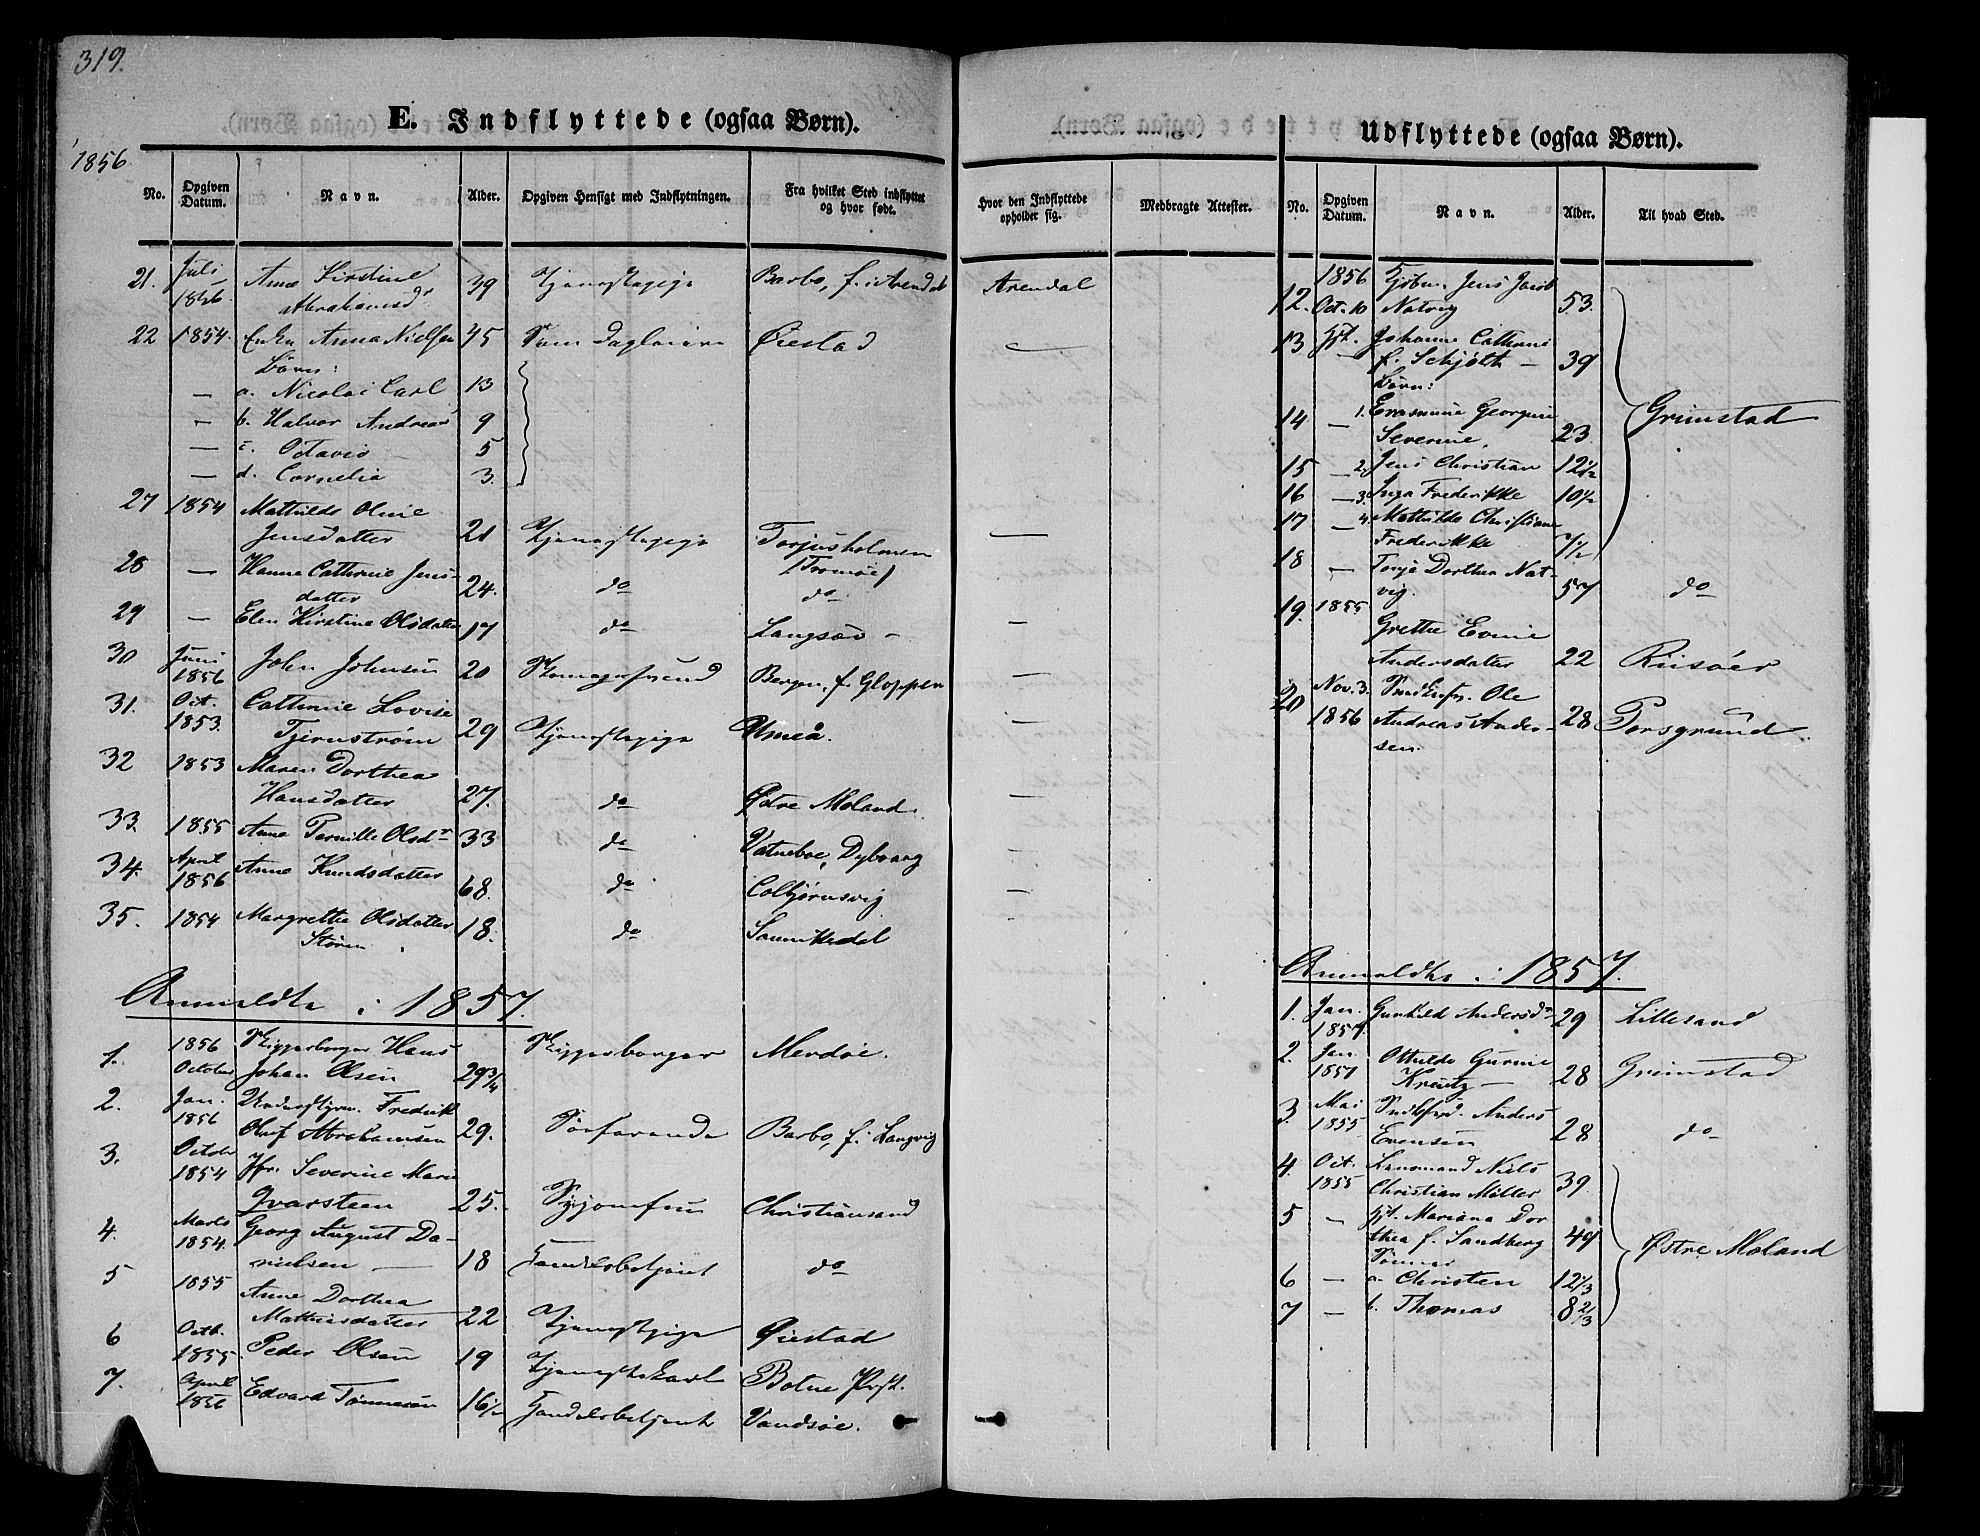 319.
E. Indflyttede (ogsaa Børn).
1856
No. Opgiven Datum. Navn. Alder. Opgiven Hensigt med Indflytningen. Fra hvilket Sted indflyttet og hvor født.
21. Juli 1856. Anne Kirstine Abrahamsdr 39 Tjenestepige Barbo, f. i Arendal
22 1854. Enke Anna Nielsen 45 Som Dagleier Øiestad
Børn:
— a. Nicolai Carl 13
— b. Halvor Andreas 9
— c. Octavio 5
— d. Cornelia 3.
27 1854 Mathilde Oline
Jensdatter 21 Tjenestepige Torjusholmen
(Tromøe)
28 — Hanne Cathrine Jens-
datter 24. do do
29 — Elen Kirstine Olsdatter 17 do Langsæv
30 Juni 1856 John Johnsen 20 Bergen, f. Gloppen
31. Oct. 1853. Cathrine Lovise
Tjernstrøm 29 Tjenestepige Umeå.
32 1853 Maren Dorthea
Hansdatter 27. do Østre Moland.
33. 1855 Anne Pernille Olsdr 33 do Vatneboe, Dybvaag
34. April 1856 Anne Knudsdatter 68. do Colbjørnsvig
35. 1854 Margrethe Olsdatter
Støren 18. do Sannikedal
Anmeldte i 1857.
1. 1856 October Skipperborger Hans
Johan Olsen 29 3/4 Skipperborger Merdøe.
2. Jan. 1856 Understyrm. Fredrik
Oluf Abrahamsen 29. Søfarende Barbo, f. i Langvig
3. October 1854 Jfr. Severine Marie
Qvarsteen 25. Syjomfru Christiansand
4. Marts 1854. Georg August Da-
nielsen — 18 Handelsbetjent do
5 1855 Anne Dorthea
Mathiesdatter 22 Tjenestepige Øiestad
6 Octb. 1855. Peder Olsen 19 Tjenestekarl Botne Præst.
7. April 1856 Edvard Tønnesen 16 1/2 Handelsbetjent Vandsøe.
Hvor den Indflyttede opholder sig. Medbragte Attester.
Arendal
Udflyttede (ogsaa Børn).
No. Opgiven Datum. Navn. Alder. Til hvad Sted.
12. 1856 Oct. 10 Kjøbm. Jens Jacob
Natvig 53.
13 Hst. Johanne Cathrine
f. Schjøth — 39
Børn:
14 — 1. Erasmine Georgine
Severine, 23 Grimstad
15 — 2. Jens Christian 12 1/2
16 — 3. Inga Frederikke 10 1/2
17 — 4. Mathilde Christiane
Frederikke 7 1/2
18 — Tonje Dorthea Nat-
vig. 57 do
19. 1855 Grethe Evine
Andersdatter 22 Riisøer
20 Nov. 3. 1856 Ole
Andreas Ander-
sen. 28 Porsgrund.
Anmeldte i 1857.
1. Jan. 1857. Gunhild Andersdr 29 Lillesand
2. Jan. 1857 Othilde Gurine
Kreutz — 28 Grimstad
3. Mai 1855 Anders
Evensen 28 do
4. Oct. 1855 Lensmand Niels
Christian Møller 39.
5 — Hst. Mariana Dor
thea f. Sandberg 49 Østre Moland
Sønner
6 — a. Christen 12 1/3
7 — b. Thomas 8 2/3